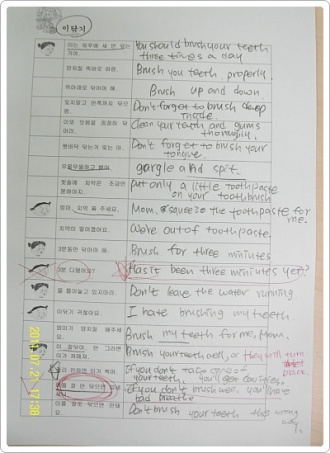 이닦기
이는 하루에 세 번 닦는 거야.
You should brush your teeth
three times a day
Brush you teeth properly.
위아래로 닦아야 해.
Brush up and down
Don't forget to brush deep
inside.
Clean your teeth and gums
thoroughly.
Don't forget to brush your
tongue.
gargle and spit.
put only a little toothpaste
on your toothbrush
엄마, 치약 짜 주세요.
Mom, squeeze the toothpaste for
me.
We're out of toothpaste.
3분동안 닦아야 해.
Brush for three miniutes
3분 다됐어요?
Has it been three miniutes yet?
물 틀어놓고 있지마라.
Don't leave the water running
이닦기 귀찮아요.
I hate brushing my teeth.
Brush my teeth for me, Mom.
Brush your teeth well, or they will turn
black.
If you don't take care of
your teeth, you'll get cavities.
If you don't brush well, you'll have
bad breathe
Don't brush your teeth this wrong
way.